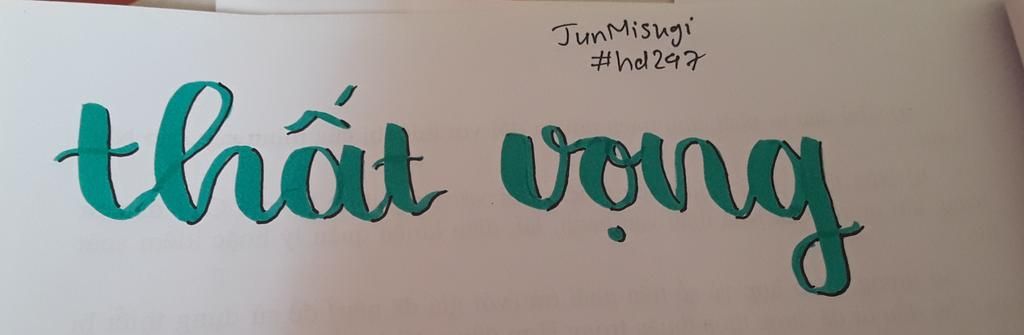 JunMisugi
#hd297
thất vọng